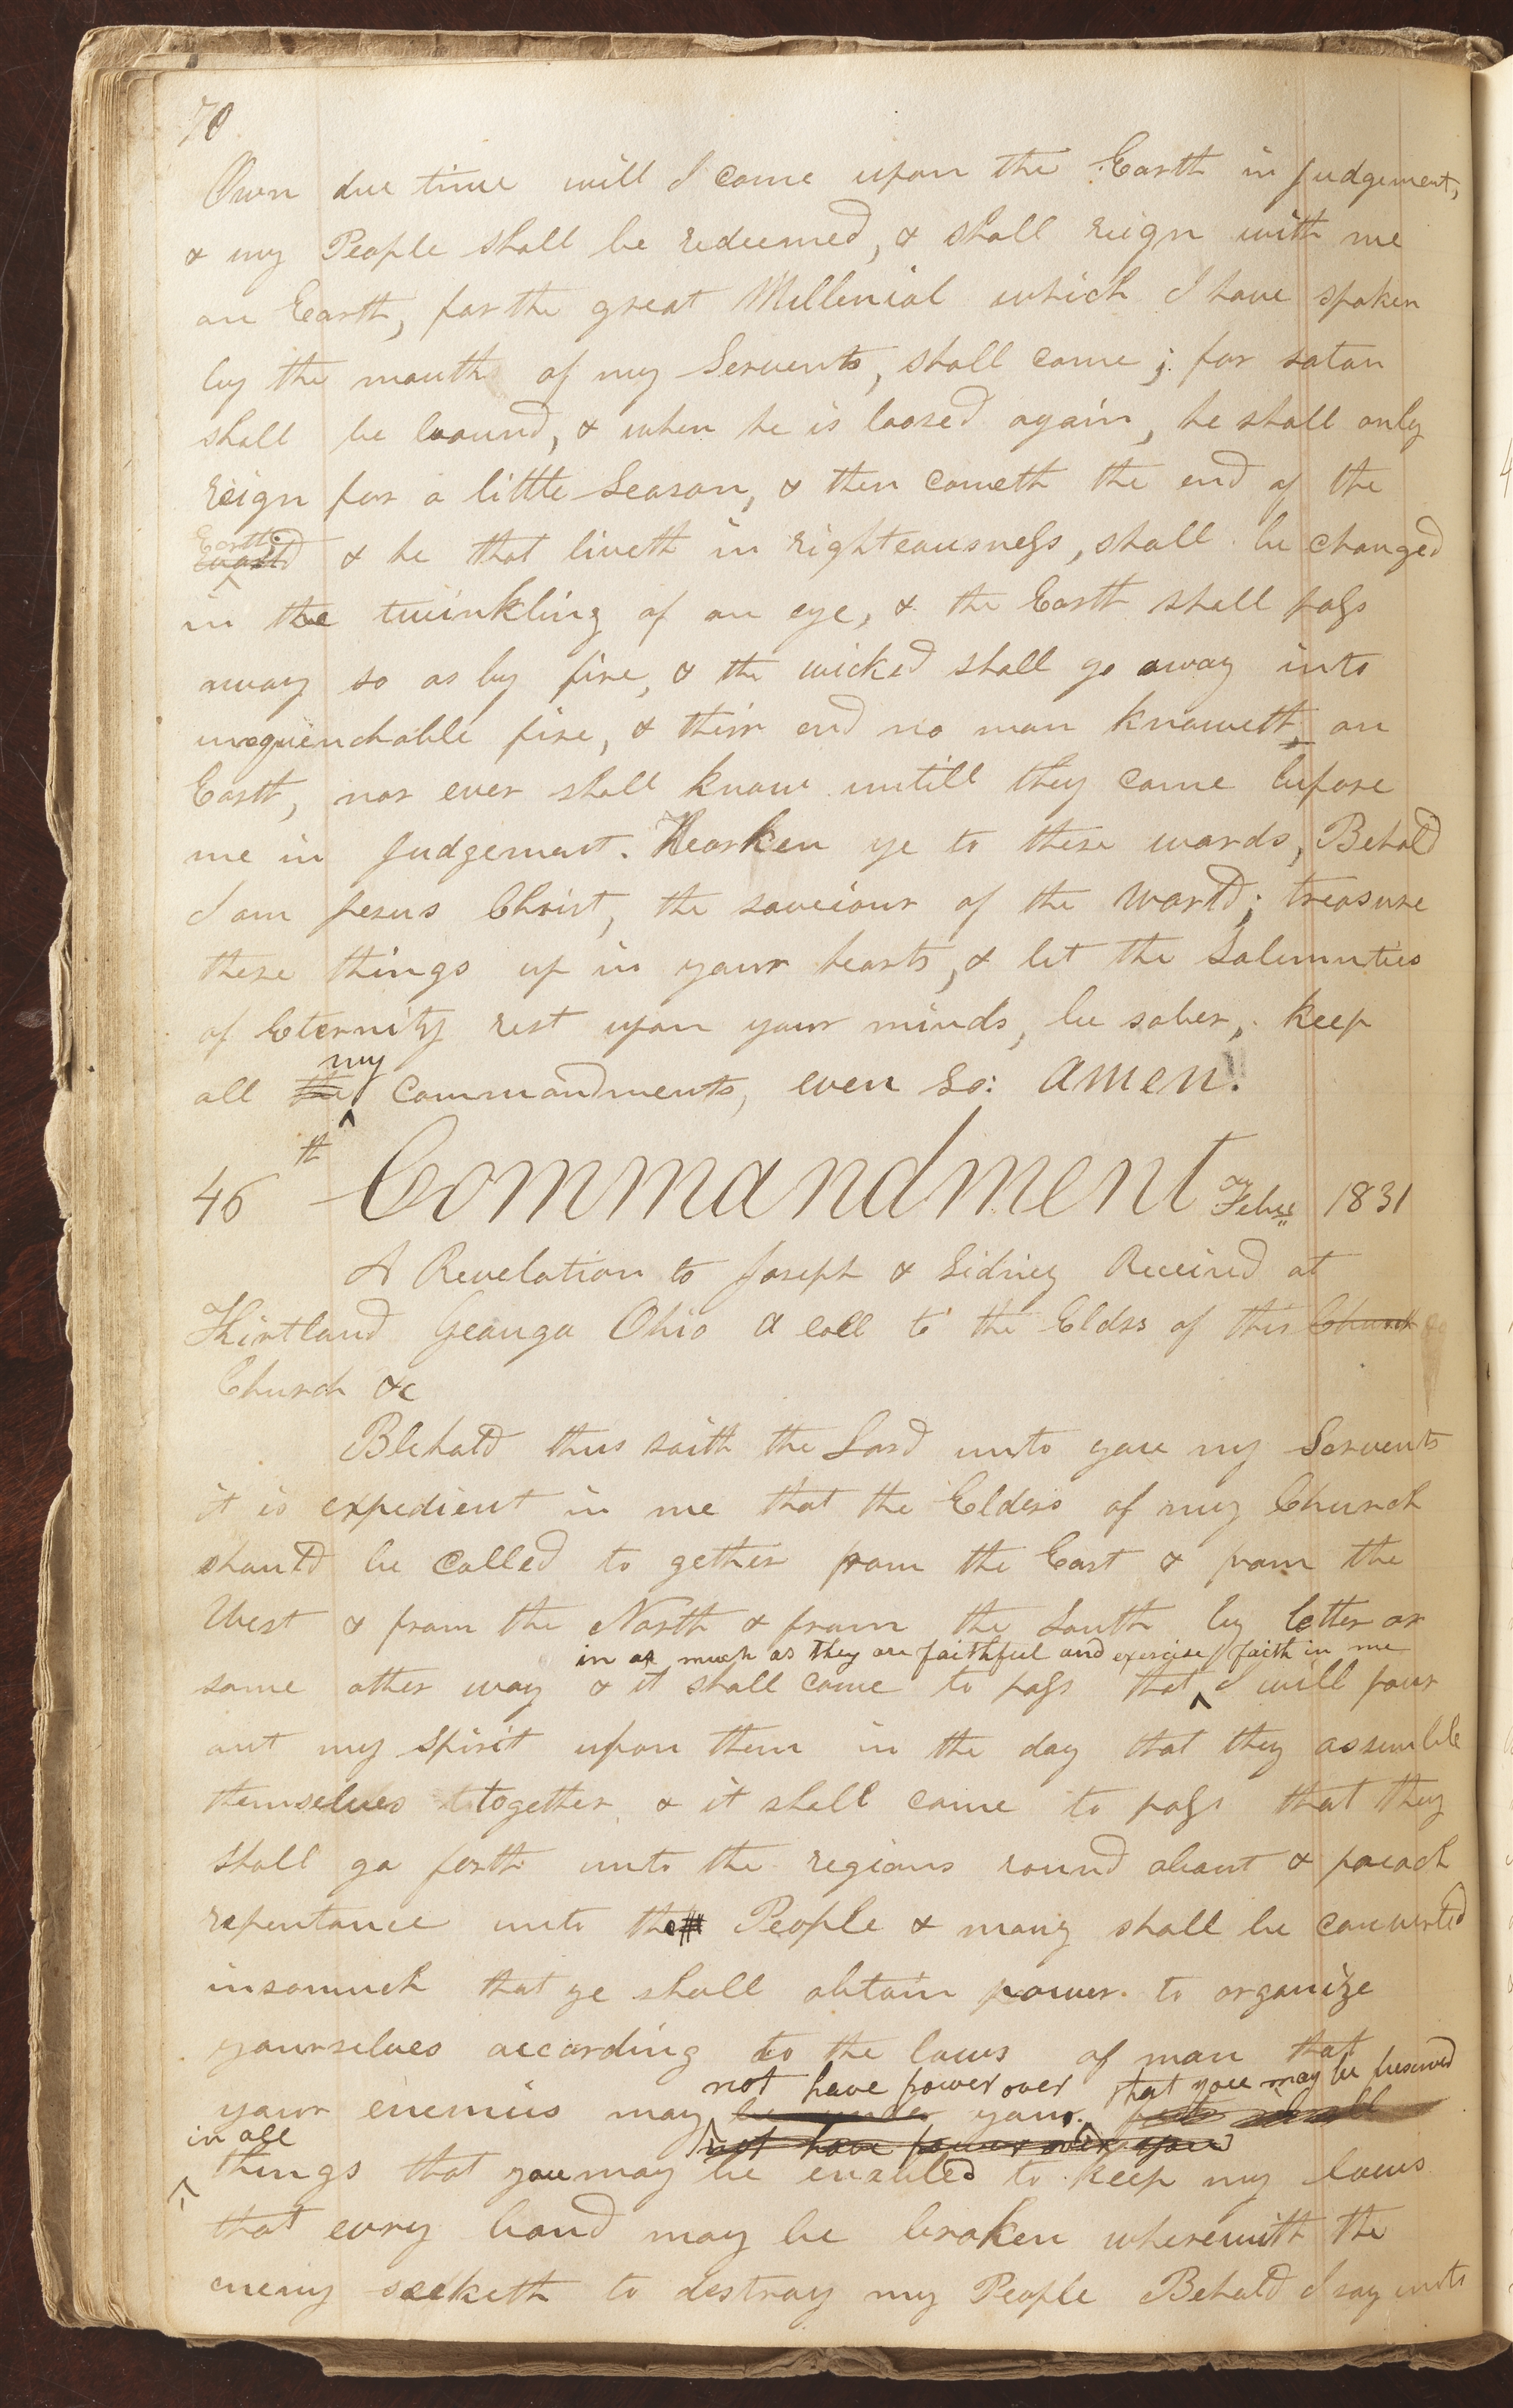 70
Own due time will I come upon the Earth in Judgement,
& my People shall be redeemed, & shall reign with me
on Earth, for the great Millenial which I have spoken
by the mouth of my Servents, shall come; for satan
shall be bound, & when he is loosed again, he shall only
reign for a little Season, & then cometh the end of the
Earth
& he that liveth in righteousness, shall be changed
in the twinkling of an eye, & the Earth shall pass
away so as by fire, & the wicked shall go away into
unquenchable fire, & their end no man knoweth, on
Earth, nor ever shall know untill they come before
me in Judgement. Hearken ye to these words, Behold
I am Jesus Christ, the saveiour of the World; treasure
these things up in your hearts, & let the Solemnities
of Eternity rest upon your minds, be sober, keep
my
all the commandments, even so: Amen.
46th Commandment Feby 1831
A Revelation to Joseph & Sidney Received at
Kirtland Geauga Ohio a call to the Elders of this Church
Church &c
Behold thus saith the Lord unto you my Servents
it is expedient in me that the Elders of my Church
should be called to gether from the East & from the
West & from the North & from the South by letter or
in as much as they are faithful and exercise faith in me
some other way & it shall come to pass that I will pour
out my spirit upon them in the day that they assemble
themselves together & it shall come to pass that they
shall go forth unto the regions round about & preach
repentance unto the People & many shall be converted
insomuch that ye shall obtain power to organize
yourselves according to the laws of man that
not have power over that you may be preserved
your enemies may be under your feet
in all not have power over you
things that you may be enabled to keep my laws
that evry band may be broken wherewith the
enemy seeketh to destroy my People Behold I say unto